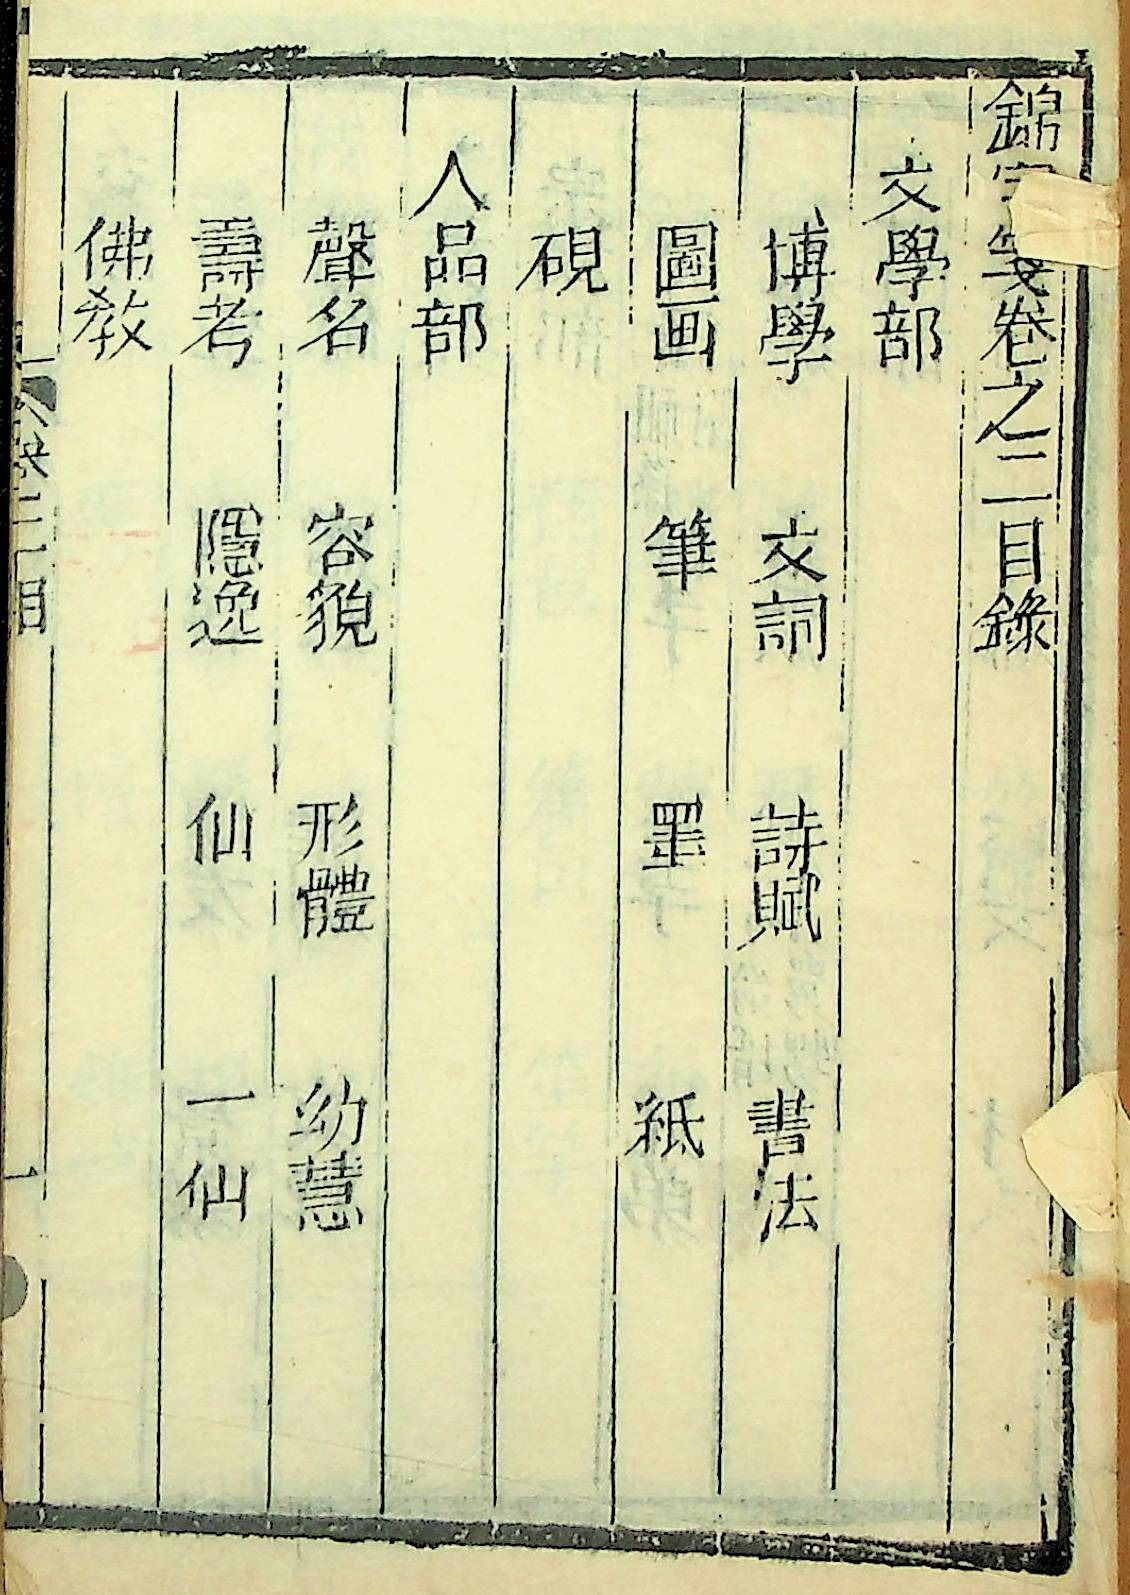 錦字箋卷之二目錄
文學部
博學 文詞 詩賦 書法
圖画 筆 墨 紙
硯
人品部
聲名 容貌 形體 幼慧
壽考 隱逸 仙 一仙
佛教
卷二 目 一